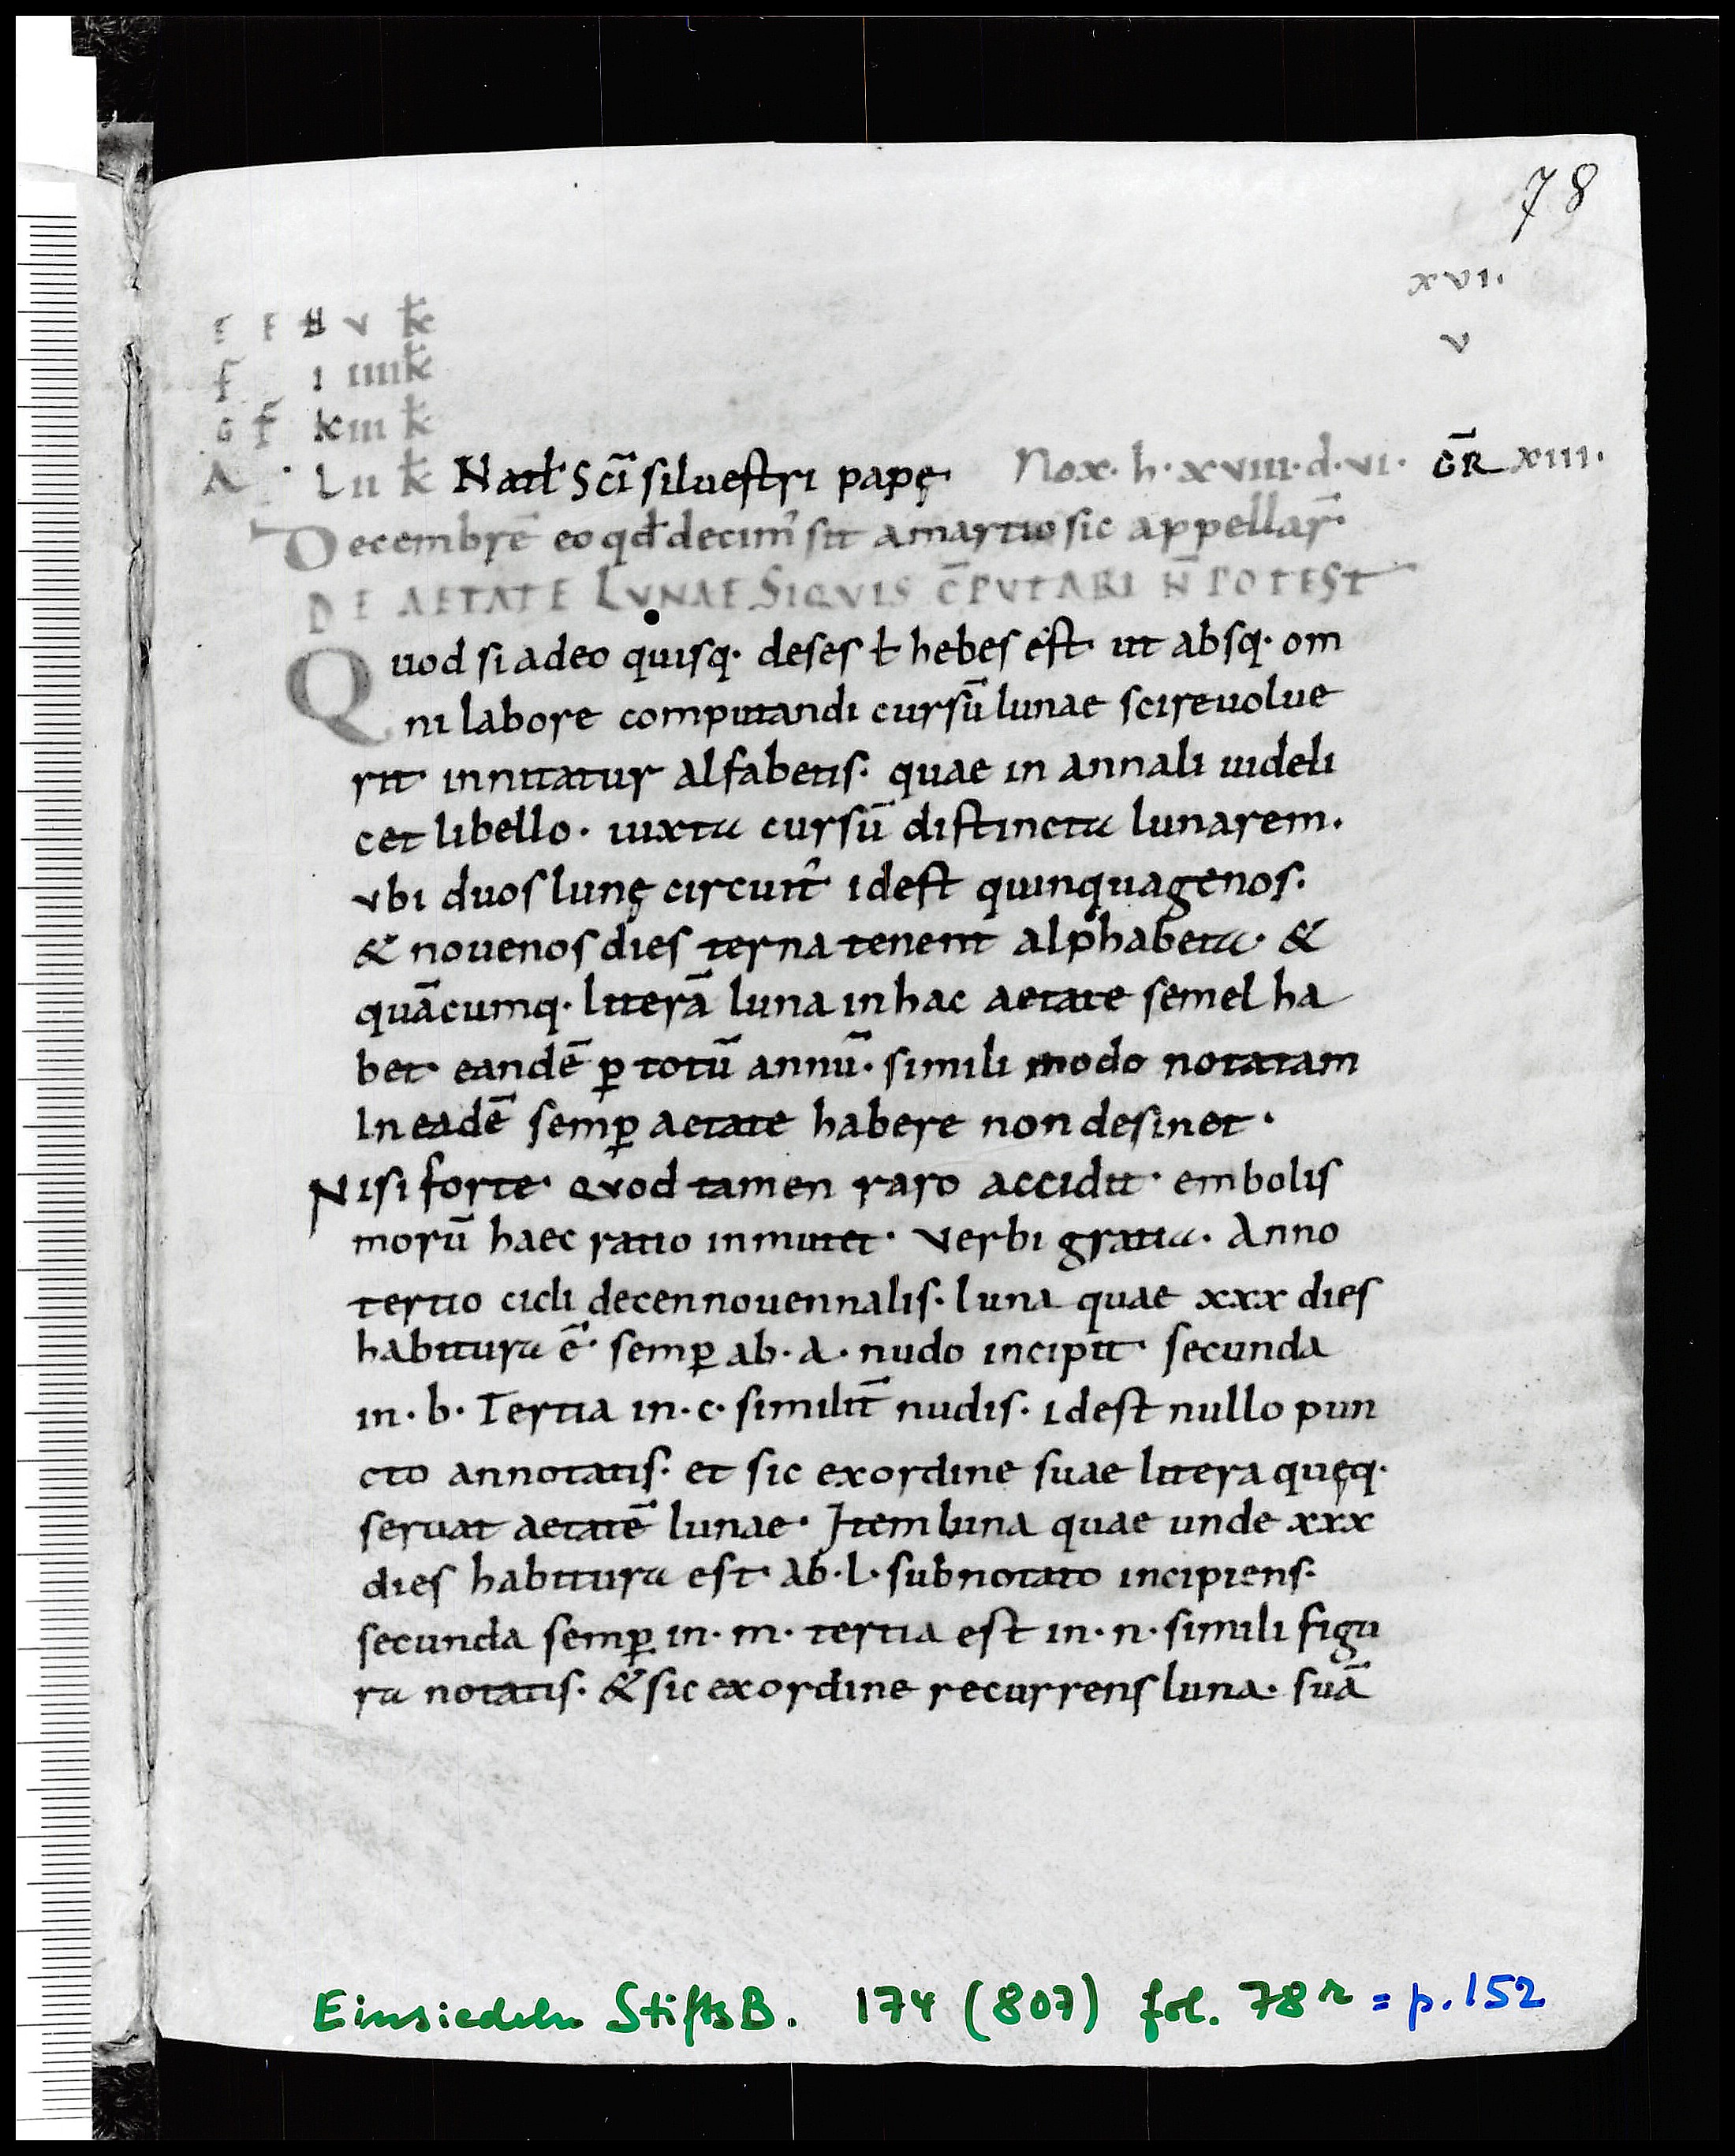 78
xvi.
E F H v k̄
v
f i iiii k̄
G f̄ k iii k̄
A · L ii k̄ Natł Sc̄i silvestri papę· Nox· h· xviii· d· vi· ḠR xiii.
Decembrē eo qđ decim' sit a martio sic appellar̄·
DE AETATE LUNAE SI QVIS C̄PVTARI N̄ POTEST
Quod si adeo quisq· deses ł hebes est· ut absq· om
ni labore computandi cursū lunae scire volue
rit· innitatur alfabetis· quae in annali videli
cet libello· iuxta cursū distincta lunarem.
vbi duos lunę circuit' idest quinquagenos·
& novenos dies terna tenent alphabeta· &
quācumq· litterā luna in hac aetate semel ha
bet· eandē ꝑ totū annū· simili modo notatam
In eadē semꝑ aetate habere non desinet·
Nisi forte· qvod tamen raro accidit· embolis
morū haec ratio inmutet· verbi gratia. Anno
tertio cicli decennouennalis· luna quae xxx dies
habitura ē· semꝑ ab· a· nudo incipit· secunda
in· b· Tertia in· c· similit̄ nudis· idest nullo pun
cto annotatis· et sic ex ordine suae litera quęq·
servat aetatē lunae· Item luna quae unde xxx
dies habitura est· ab· l· subnotato incipiens·
secunda semꝑ in· m· tertia est in· n· simili figu
ra notatis· & sic ex ordine recurrens luna· suā
Einsiedeln StiftsB. 174 (807) fol. 78r = p. 152